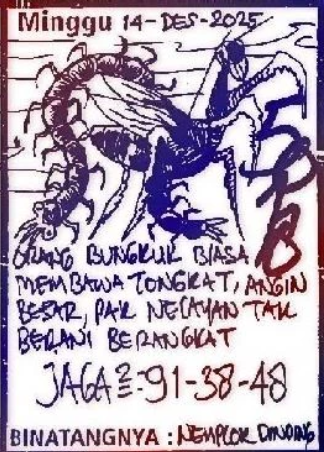 Minggu 14-DES-2025
ORANG BUNGKUK BIASA
MEMBAWA TONGKAT, ANGIN
BESAR, PAK NELAYAN TAK
BERANI BERANGKAT
JAGA2=91-38-48
BINATANGNYA : NEMPLOK DINDING